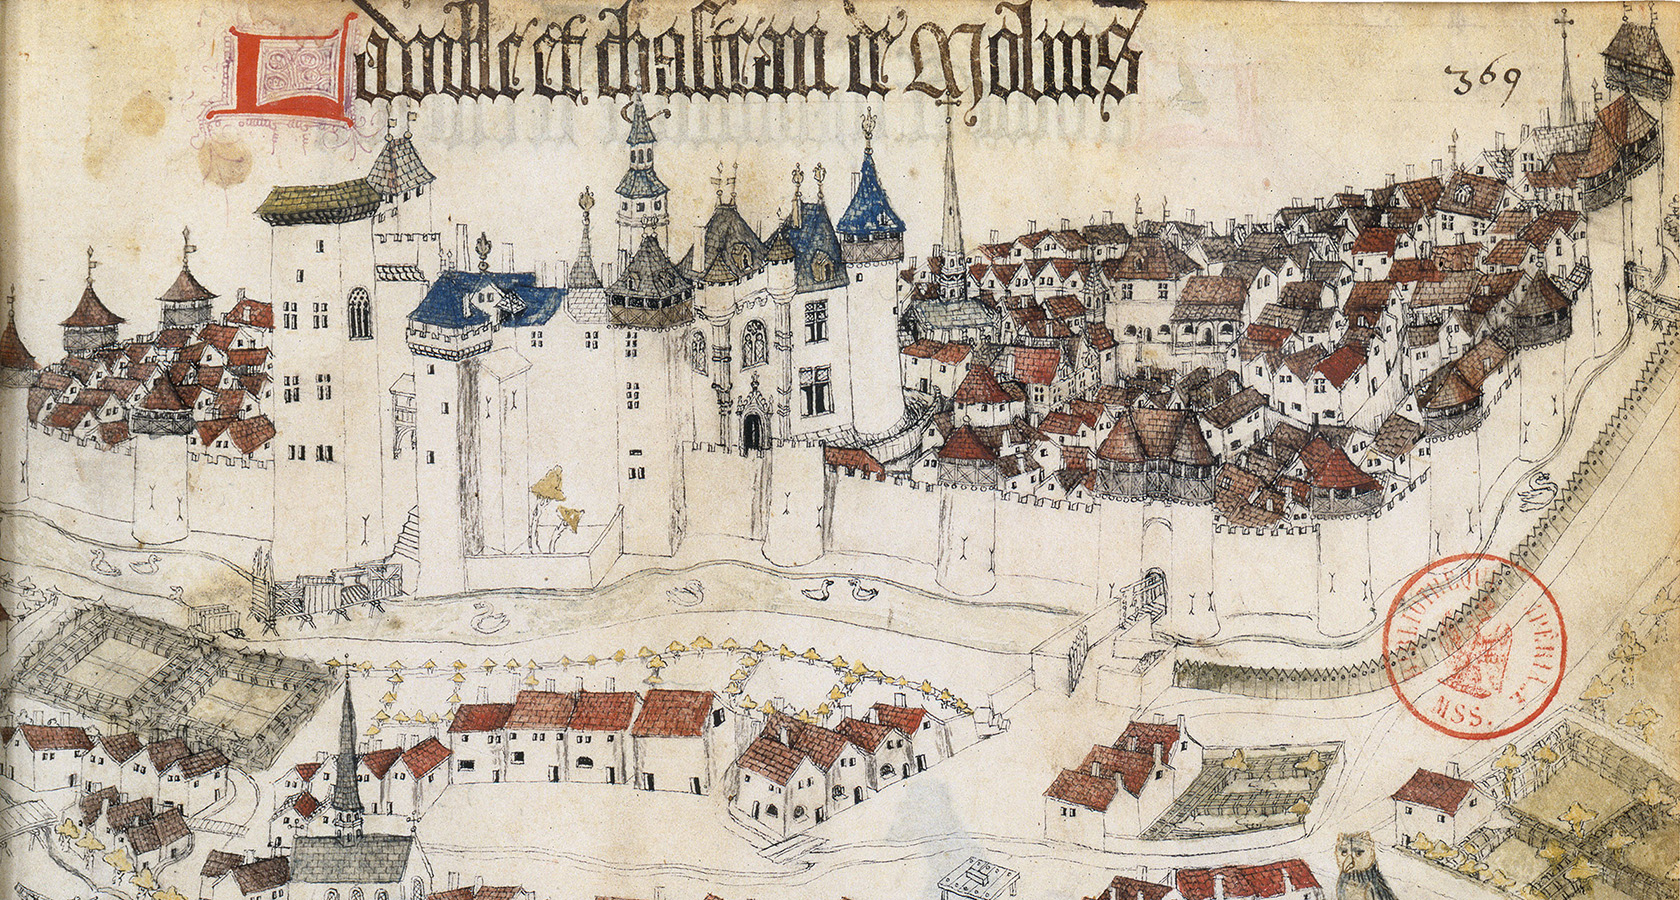 La ville et chasteau de Molins
369
BIBLIOTHEQUE IMPÉRIALE
MSS.